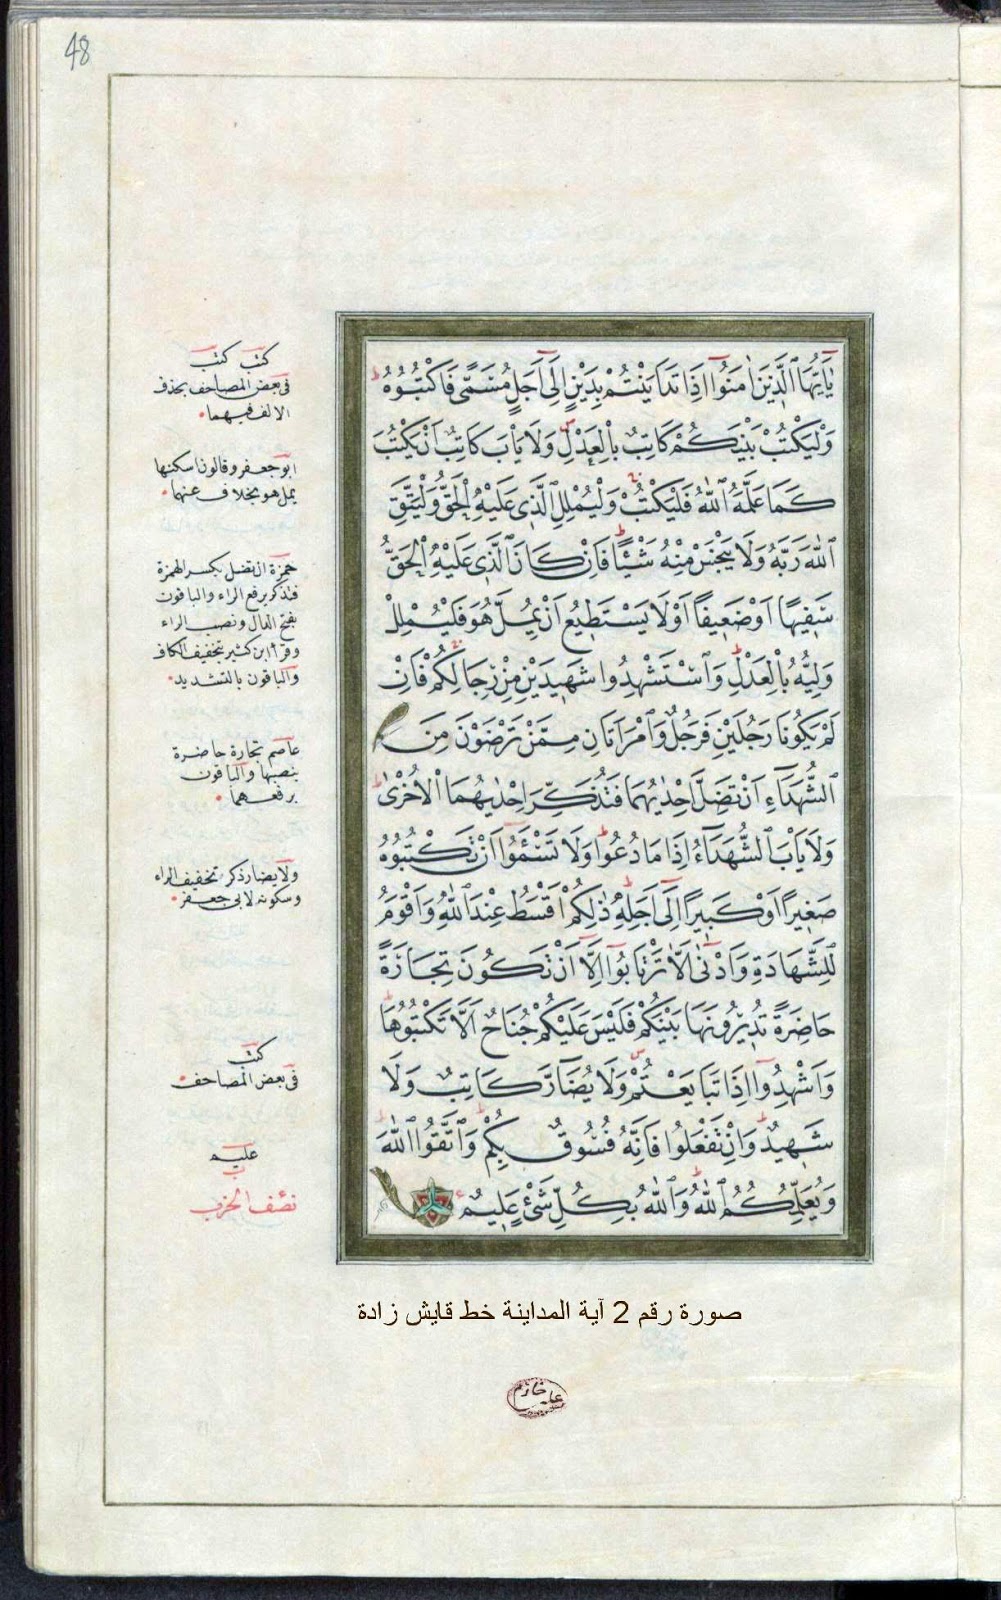 48
يٰٓاَيُّهَا الَّذٖينَ اٰمَنُٓوا اِذَا تَدَايَنْتُمْ بِدَيْنٍ اِلٰٓى اَجَلٍ مُسَمًّى فَاكْتُبُوهُ
وَلْيَكْتُبْ بَيْنَكُمْ كَاتِبٌ بِالْعَدْلِ وَلَا يَاْبَ كَاتِبٌ اَنْ يَكْتُبَ
كَمَا عَلَّمَهُ اللّٰهُ فَلْيَكْتُبْ وَلْيُمْلِلِ الَّذٖى عَلَيْهِ الْحَقُّ وَلْيَتَّقِ
اللّٰهَ رَبَّهُ وَلَا يَبْخَسْ مِنْهُ شَيْئًا فَاِنْ كَانَ الَّذٖى عَلَيْهِ الْحَقُّ
سَفٖيهًا اَوْ ضَعٖيفًا اَوْ لَا يَسْتَطٖيعُ اَنْ يُمِلَّ هُوَ فَلْيُمْلِلْ
وَلِيُّهُ بِالْعَدْلِ وَاسْتَشْهِدُوا شَهٖيدَيْنِ مِنْ رِجَالِكُمْ فَاِنْ
لَمْ يَكُونَا رَجُلَيْنِ فَرَجُلٌ وَامْرَاَتَانِ مِمَّنْ تَرْضَوْنَ مِنَ
الشُّهَدَٓاءِ اَنْ تَضِلَّ اِحْدٰيهُمَا فَتُذَكِّرَ اِحْدٰيهُمَا الْاُخْرٰى
وَلَا يَاْبَ الشُّهَدَٓاءُ اِذَا مَا دُعُوا وَلَا تَسْئَمُٓوا اَنْ تَكْتُبُوهُ
صَغٖيرًا اَوْ كَبٖيرًا اِلٰٓى اَجَلِهٖ ذٰلِكُمْ اَقْسَطُ عِنْدَ اللّٰهِ وَاَقْوَمُ
لِلشَّهَادَةِ وَاَدْنٰٓى اَلَّا تَرْتَابُٓوا اِلَّٓا اَنْ تَكُونَ تِجَارَةً
حَاضِرَةً تُدٖيرُونَهَا بَيْنَكُمْ فَلَيْسَ عَلَيْكُمْ جُنَاحٌ اَلَّا تَكْتُبُوهَا
وَاَشْهِدُٓوا اِذَا تَبَايَعْتُمْ وَلَا يُضَٓارَّ كَاتِبٌ وَلَا
شَهٖيدٌ وَاِنْ تَفْعَلُوا فَاِنَّهُ فُسُوقٌ بِكُمْ وَاتَّقُوا اللّٰهَ
وَيُعَلِّمُكُمُ اللّٰهُ وَاللّٰهُ بِكُلِّ شَىْءٍ عَلٖيمٌ
كتب كتب
فى بعض المصاحف بحذف
الالف فيهما
ابو جعفر وقالون اسكنها
يمل هو بخلاف عنهما
حمزة ان تضل بكسر الهمزة
فتذكر برفع الراء والباقون
بفتح ونصب الراء
وقرأ ابن كثير بتخفيف الكاف
والباقون بالتشديد
عاصم تجارة حاضرة
بنصبها والباقون
برفعهما
ولا يضار ذكر تخفيف الراء
وسكونه لابى جعفر
كتب
فى بعض المصاحف
عليم
نصف الحزب
صورة رقم 2 آية المداينة خط قايش زادة
علي خازم